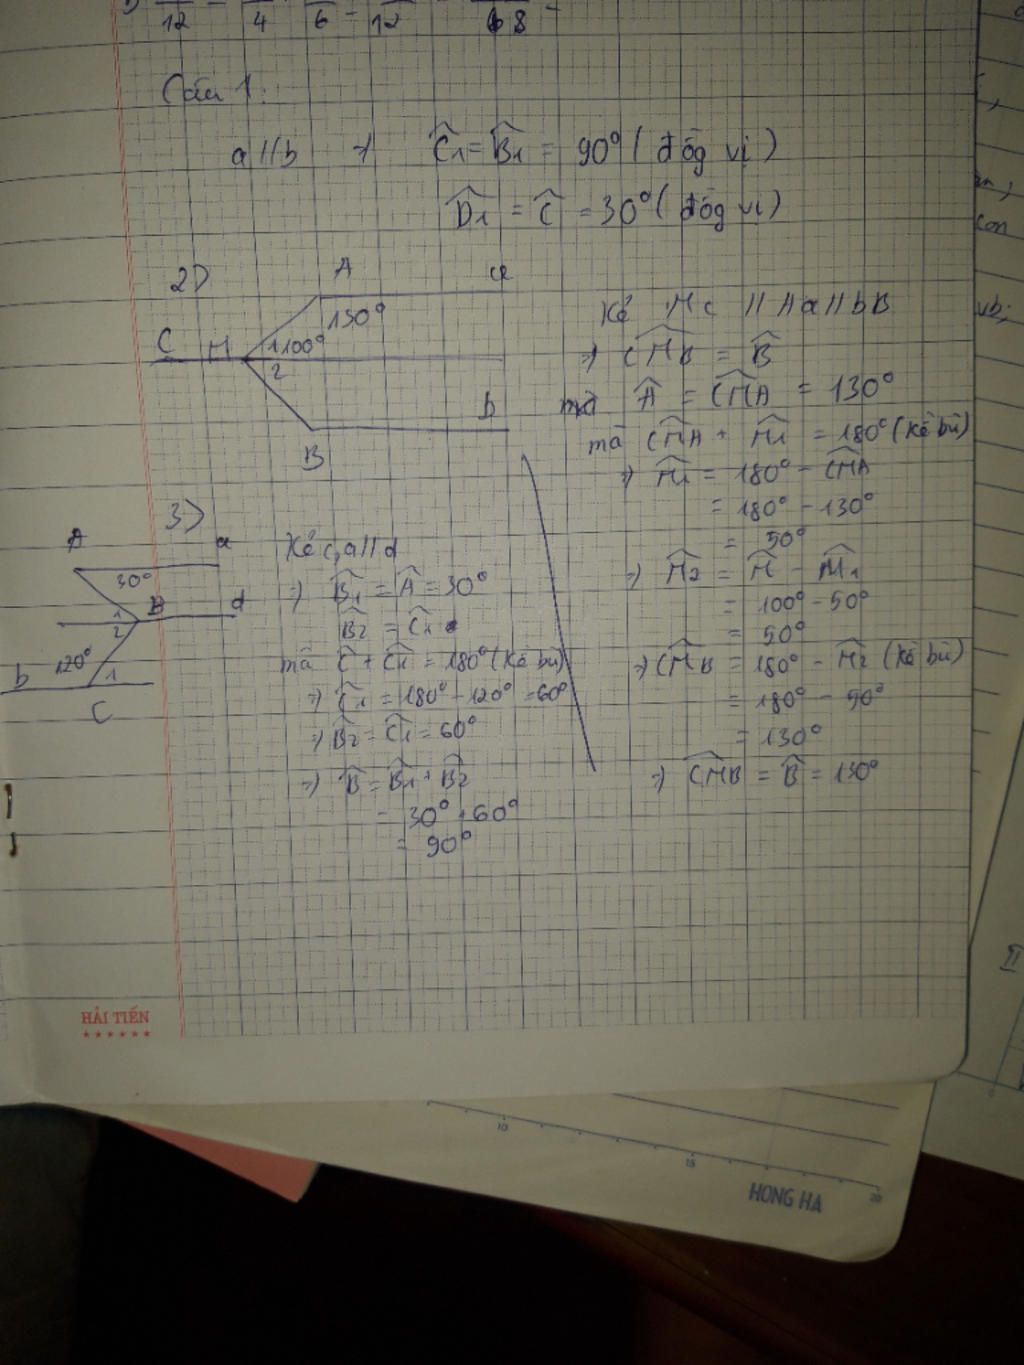 12 4 6 12 18
Câu 1:
a // b => Ĉ1 = B̂1 = 90° ( đồg vị )
D̂1 = Ĉ = 30° ( đồg vị )
2>
A a
130°
C M 1 100°
2
b
B
Kẻ Mc // Aa // bB
=> CMB = B̂
mà Â = CMA = 130°
mà CMA + M̂1 = 180° (kề bù)
=> M̂1 = 180° - CMA
= 180° - 130°
= 50°
=> M̂2 = M̂ - M̂1
= 100° - 50°
= 50°
=> CMB = 180° - M̂2 (kề bù)
= 180° - 50°
= 130°
=> CMB = B̂ = 130°
3>
A a
30°
1 B d
2
120°
b 1
C
Kẻ c, a // d
=> B̂1 = Â = 30°
B̂2 = Ĉ1
mà Ĉ + Ĉ1 = 180° (kề bù)
=> Ĉ1 = 180° - 120° = 60°
=> B̂2 = Ĉ1 = 60°
=> B̂ = B̂1 + B̂2
= 30° + 60°
= 90°
con
II
HẢI TIẾN
10 15 20
HONG HA